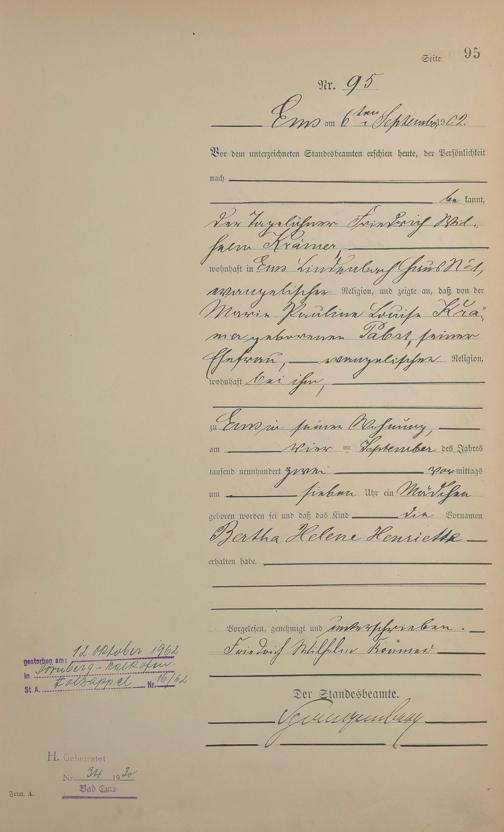 Seite 95
Nr. 95
Ems am 6ten September 1902.
Vor dem unterzeichneten Standesbeamten erschien heute, der Persönlichkeit
nach
be kannt,
der Tagelöhner Friedrich Wil-
helm Krämer,
wohnhaft in Ems Lindenbach Haus No 1,
evangelischer Religion, und zeigte an, daß von der
Marie Pauline Louise Krä-
mer geborenen Pabst, seiner
Ehefrau, evangelischer Religion,
wohnhaft bei ihm,
zu Ems in seiner Wohnung,
am vier = September des Jahres
tausend neunhundert zwei vor mittags
um sieben Uhr ein Mädchen
geboren worden sei und daß das Kind die Vornamen
Bertha Helene Henriette
erhalten habe.
Vorgelesen, genehmigt und unterschrieben.
Friedrich Wilhelm Krämer
Der Standesbeamte.
gestorben am: 12 Oktober 1962
in Dörnberg-Kalkofen
St. A. Holzappel Nr. 16/62
H. Geheiratet
Nr. 34 1930
Bad Ems
Form. A.